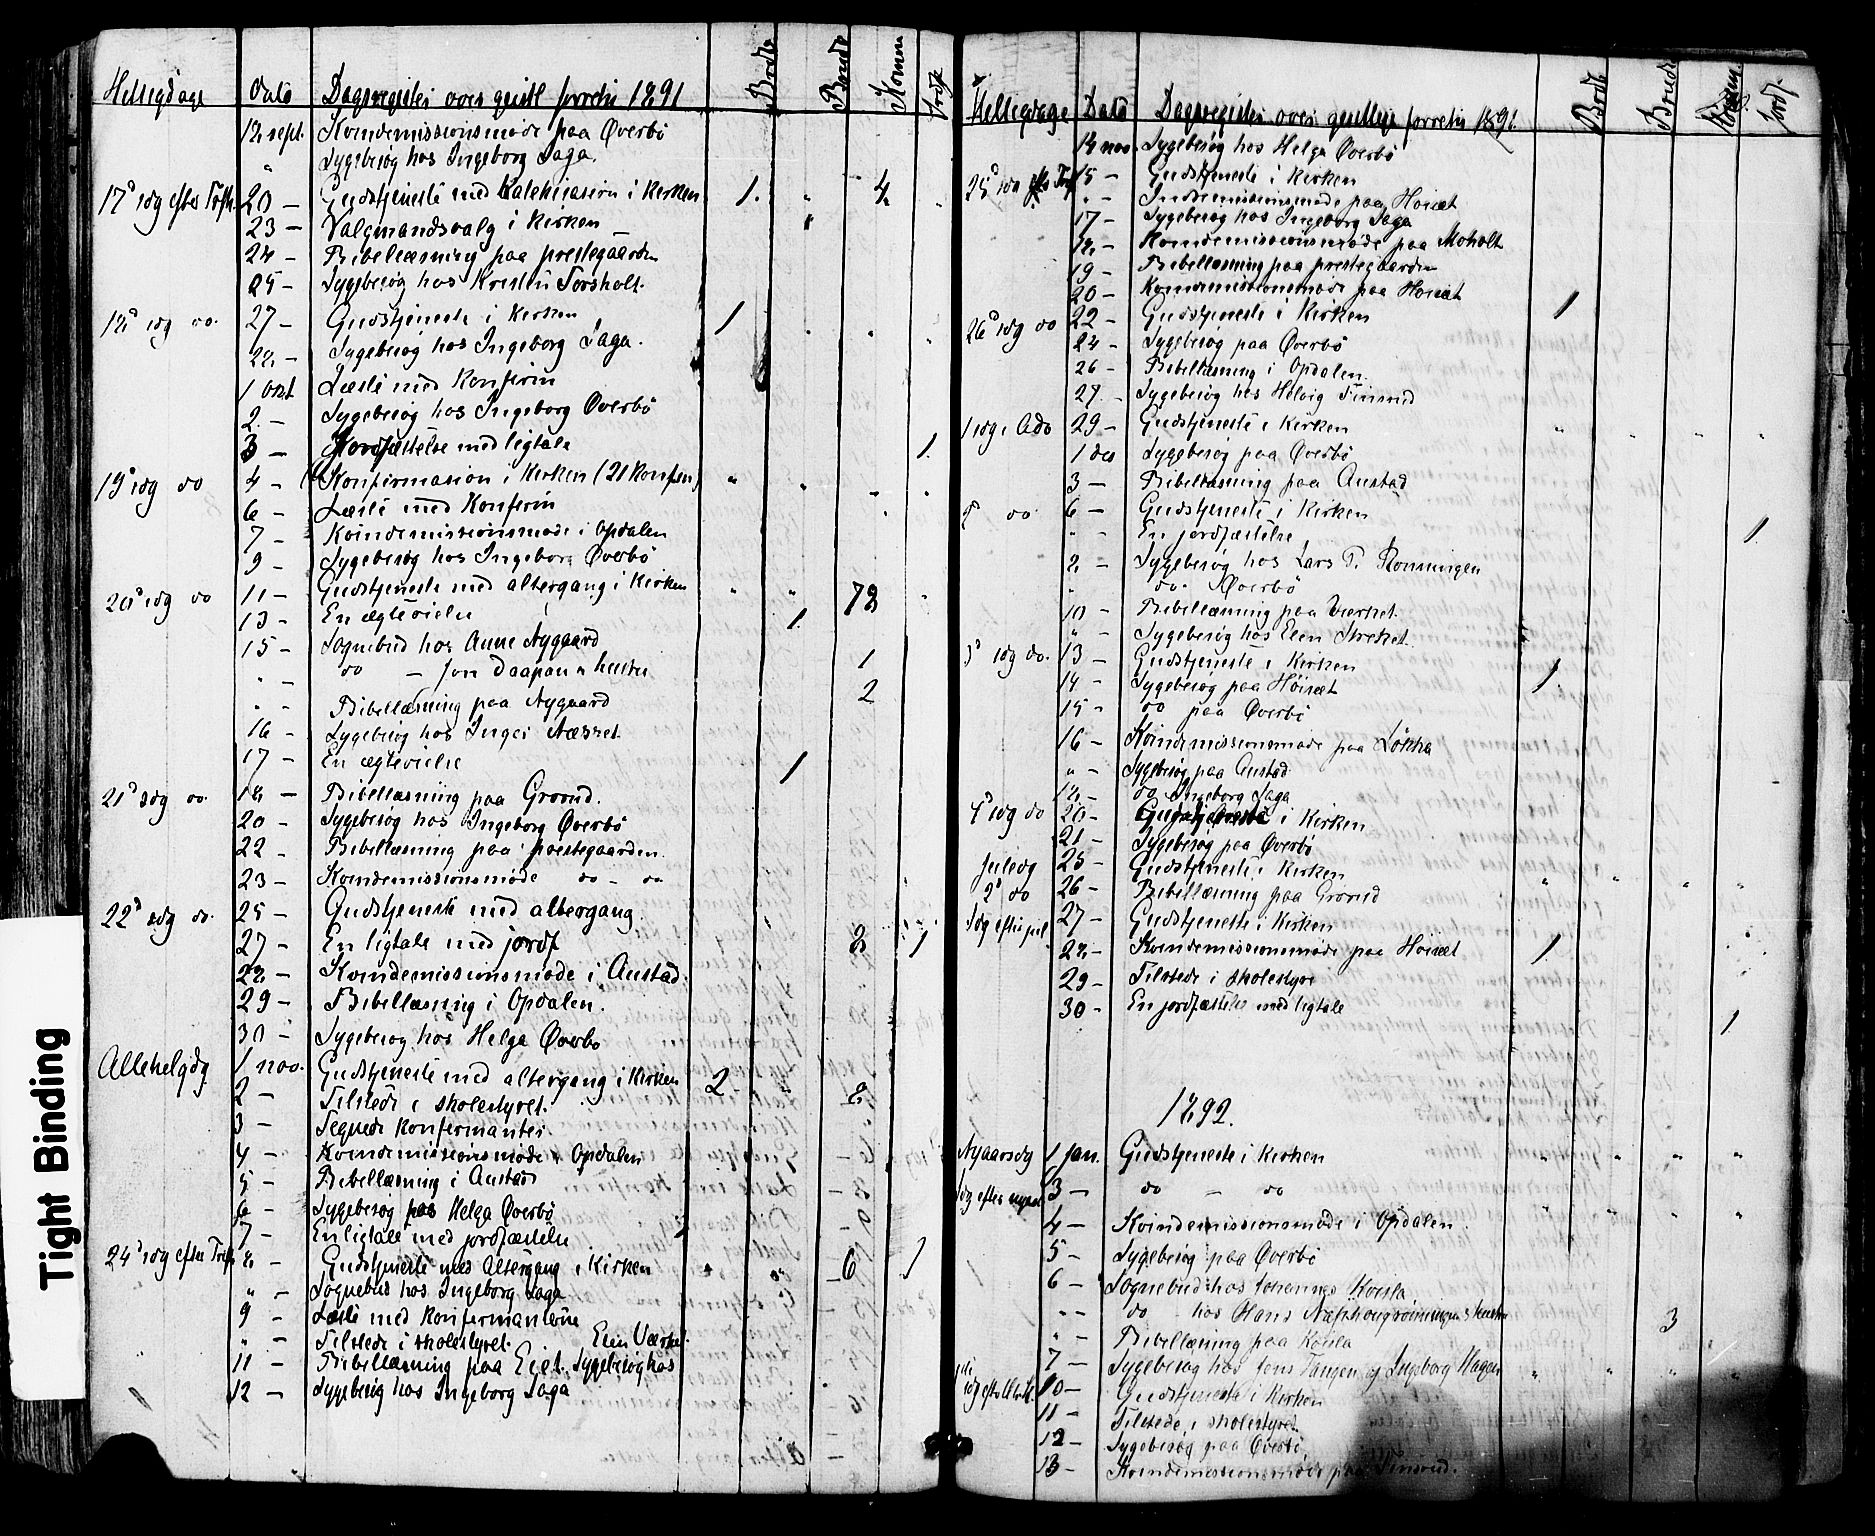 Helligdage Dato Dagsregister over geistl forretn 1891 Brdt Brude Komm Jordf
12 sept. Kvindemissionsmøde paa Øverbö
" Sygebesög hos Ingeborg Saga.
17d sdg efter Trft. 20 — Gudstjeneste med katekisation i Kirken 1. " 4 "
23 — Valgmandsvalg i Kirken
24 — Bibellæsning paa prestegaarden
25 — Sygebesög hos Kresten Torsholt.
18d sdg do. 27 — Gudstjeneste i Kirken 1 " "
28 — Sygebesög hos Ingeborg Saga.
1 okt Læste med Konferm
2 — Sygebesög hos Ingeborg Øverbö
3 — Jordfæstelse med ligtale 1.
19d sdg do 4 — Konfirmasion i Kirken (21 Konfrm) " " " "
6 — Læste med Konferm
7 — Kvindemissionsmøde i Opdalen
9 — Sygebesög hos Ingeborg Øverbö
20d sdg do 11 — Gudstjeneste med altergang i Kirken " " 78 "
13 — En egtevielse 1.
15 — Sognebud hos Anne Nygaard 1
" — do — Jon Daapan & hustru 2
" — Bibellæsning paa Nygaard
16 — Sygebesög hos Inger Næsset
17 — En egtevielse 1
21d sdg do. 18 — Bibellæsning paa Grorud.
20 — Sygebesög hos Ingeborg Øverbö
22 — Bibellæsning paa prestegaarden.
23 — Kvindemissionsmøde do — do
22d sdg do. 25 — Gudstjeneste med altergang. 8
27 — En ligtale med jordf 1
28 — Kvindemissionsmøde i Austad.
29 — Bibellæsning i Opdalen.
30 — Sygebesög hos Helga Øverbö
Allehelgdg 1 nov. Gudstjeneste med altergang i Kirken 2 8
2 — Tilstede i skolestyret.
3 — Tegnede Konfermanter.
4 — Kvindemissionsmøde i Opdalen
5 — Bibellæsning i Austad
6 — Sygebesög hos Helga Øverbö
7 — En ligtale med jordfæstelse 1
24d sdg efter Tref 8 — Gudstjeneste med Altergang i Kirken " " 6
" — Sognebud hos Ingeborg Saga
9 — Læste med Konfermanterne
" — Tilstede i skolestyret. Elen Værket.
11 — Bibellæsning paa Eget. Sygebesög hos
12 — Sygebesög hos Ingeborg Saga
Helligdage Dato Dagsregister over geistlige forretn 1891. Brdt Brude Komm. Jordf.
14 nov. Sygebesög hos Helga Øverbö
25d sdg eftr Tref 15 — Gudstjeneste i Kirken
" — Indremissionsmøde paa Höiset
17 — Sygebesög hos Ingeborg Saga
18 — Kvindemissionsmøde paa Moholt
19 — Bibellæsning paa prestegaarden
20 — Kvindemissionsmøde paa Höiset
26d sdg do 22 — Gudstjeneste i Kirken 1
24 — Sygebesög paa Øverbö
26 — Bibellæsning i Opdalen.
27 — Sygebesög hos Helvig Finsrud
1 sdg i Adv 29 — Gudstjeneste i Kirken " " " "
1 des Sygebesög paa Øverbö
3 — Bibellæsning paa Austad
2 do. 6 — Gudstjeneste i Kirken
" — En jordfæstelse 1.
8 — Sygebesög hos Lars P. Ronningen
" do. Øverbö
10 — Bibellæsning paa Værket.
" — Sygebesög hos Elen Streket.
3d sdg do. 13 — Gudstjeneste i Kirken 1
14 — Sygebesög paa Höiset
15 — do paa Øverbö
16 — Kvindemissionsmøde paa Lökka
" — Sygebesög paa Austad
18 — do Ingeborg Saga
4d sdg do 20 — Gudstjeneste i Kirken
21 — Sygebesög paa Øverbö
Juledg 25 — Gudstjeneste i Kirken " " " "
2d do 26 — Bibellæsning paa Grorud
Sdg efter jul 27 — Gudstjeneste i Kirken 1
28 — Kvindemissionsmøde paa Höiset
29 — Tilstede i skolestyre
30 — En jordfæstelse med ligtale 1
1892.
Nyaarsdg 1 jan. Gudstjeneste i Kirken " " " "
Sdg efter nyaar 3 — do — do " "
4 — Kvindemissionsmøde i Opdalen.
5 — Sygebesög paa Øverbö
6 — Sognebud hos Johannes Kvisla
" — do hos Hans & hustru 3
" — Bibellæsning paa Kvisla
7 — Sygebesög hos Jens Tangen og Ingeborg Hagen
10 — Gudstjeneste i Kirken " " " "
11 — Tilstede i skolestyret
12 — Sygebesög paa Øverbö.
13 — Kvindemissionsmøde paa Finsrud.
Tight Binding